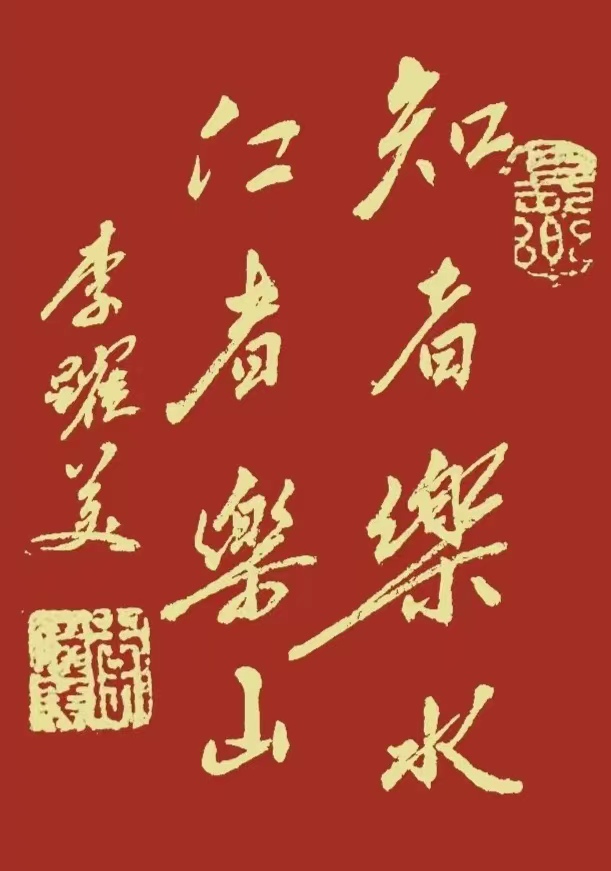 知者樂水
仁者楽山
李躍美